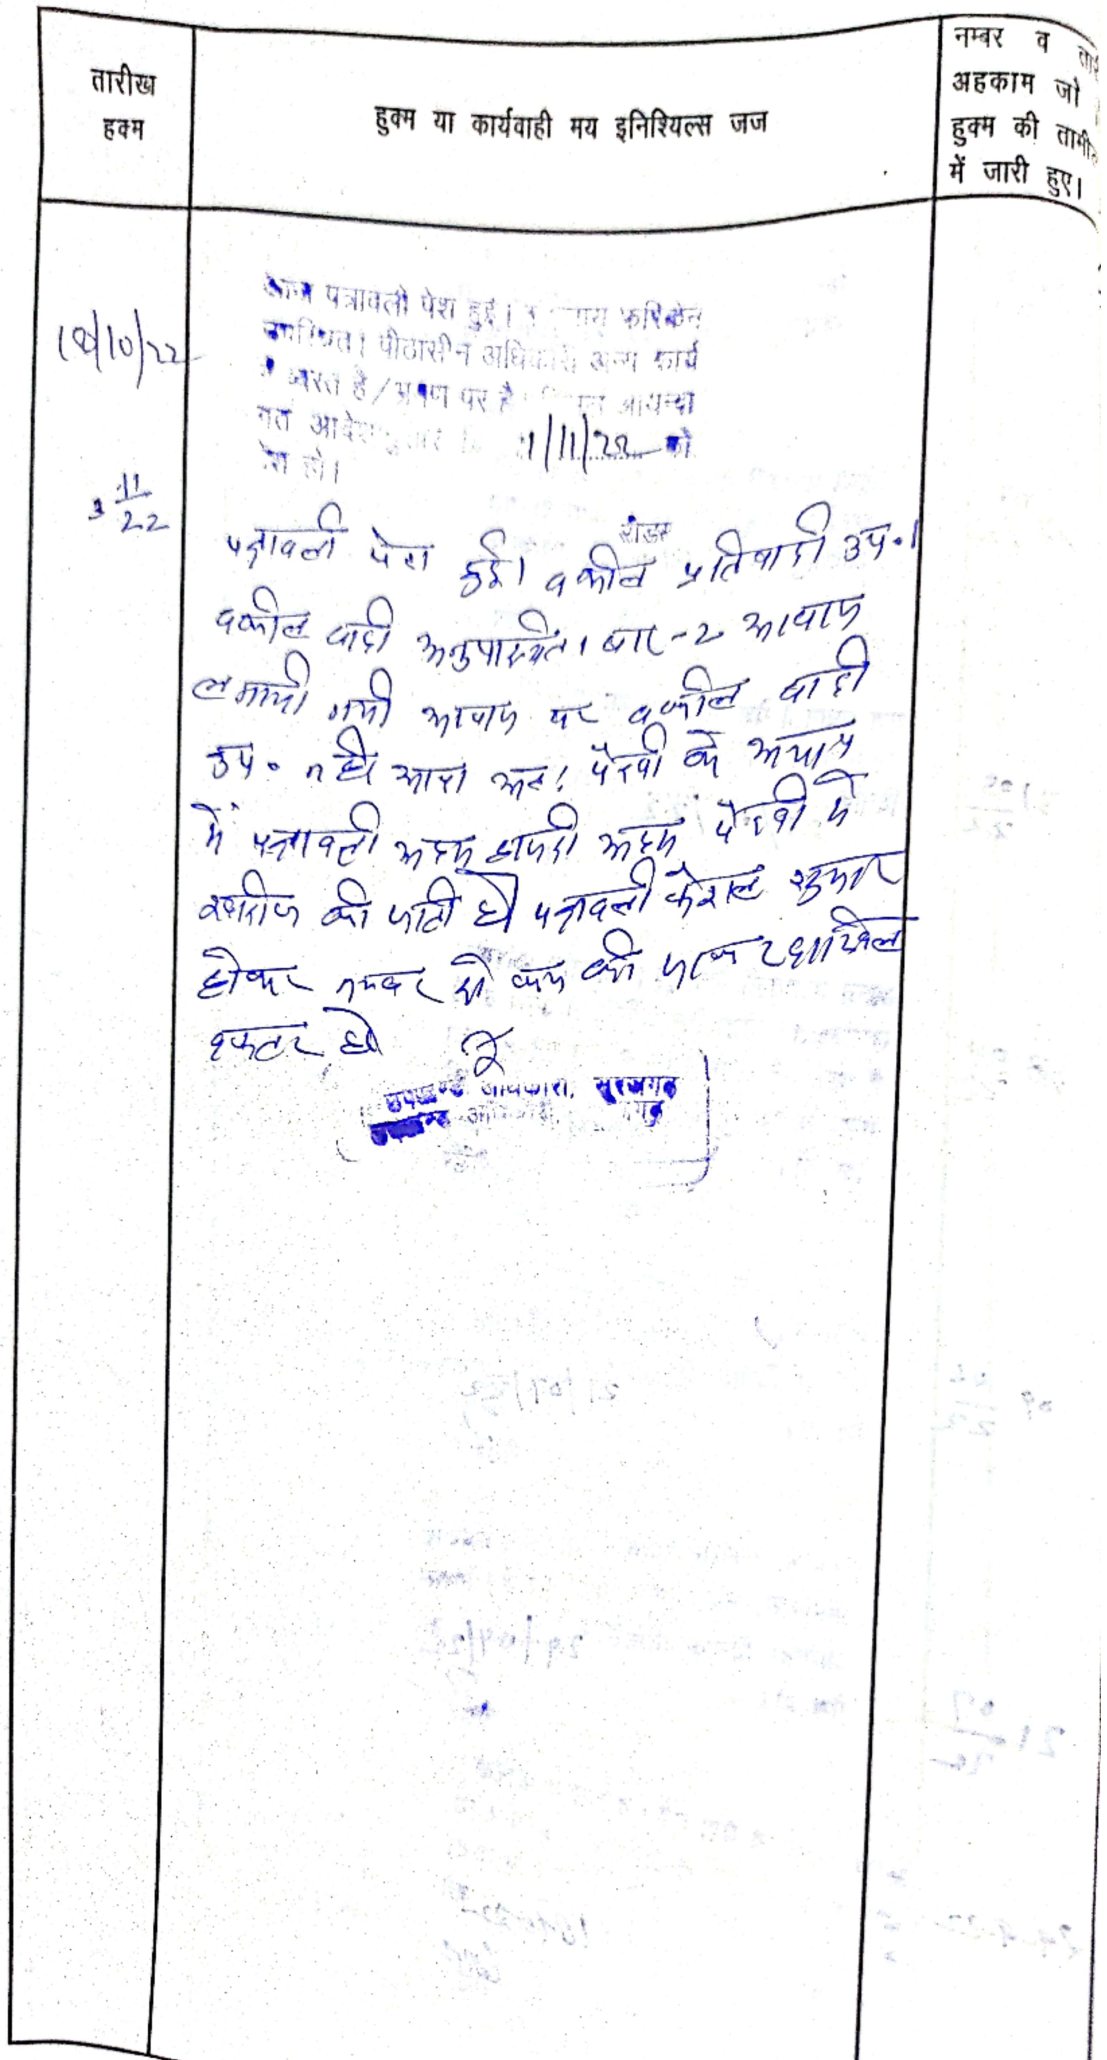 तारीख
हक्म
हुक्म या कार्यवाही मय इनिश्यिल्स जज
नम्बर व
अहकाम जो
हुक्म की तामी
में जारी हुए।
18/10/22
आज पत्रावली पेश हुई।
उपस्थित। पीठासीन अधिकारी अन्य कार्य
व्यस्त है/भ्रमण पर है।
गत
1/11/22 को
पेश हो।
11
22
रीडर
पत्रावली पेश हुई। वकील प्रतिवादी उप.।
वकील वादी अनुपास्थित। बार-2 आवाज
लगायी गयी आवाज पर वकील वादी
उप. नही आया अत: पैरवी के अभाव
में पत्रावली अदम हाजरी अदम पैरवी में
खारीज की जाती है पत्रावली फैशल शुमार
होकर नम्बर से कम की जाकर दाखिल
दफ्तर हो
उपखण्ड अधिकारी, सूरजगढ